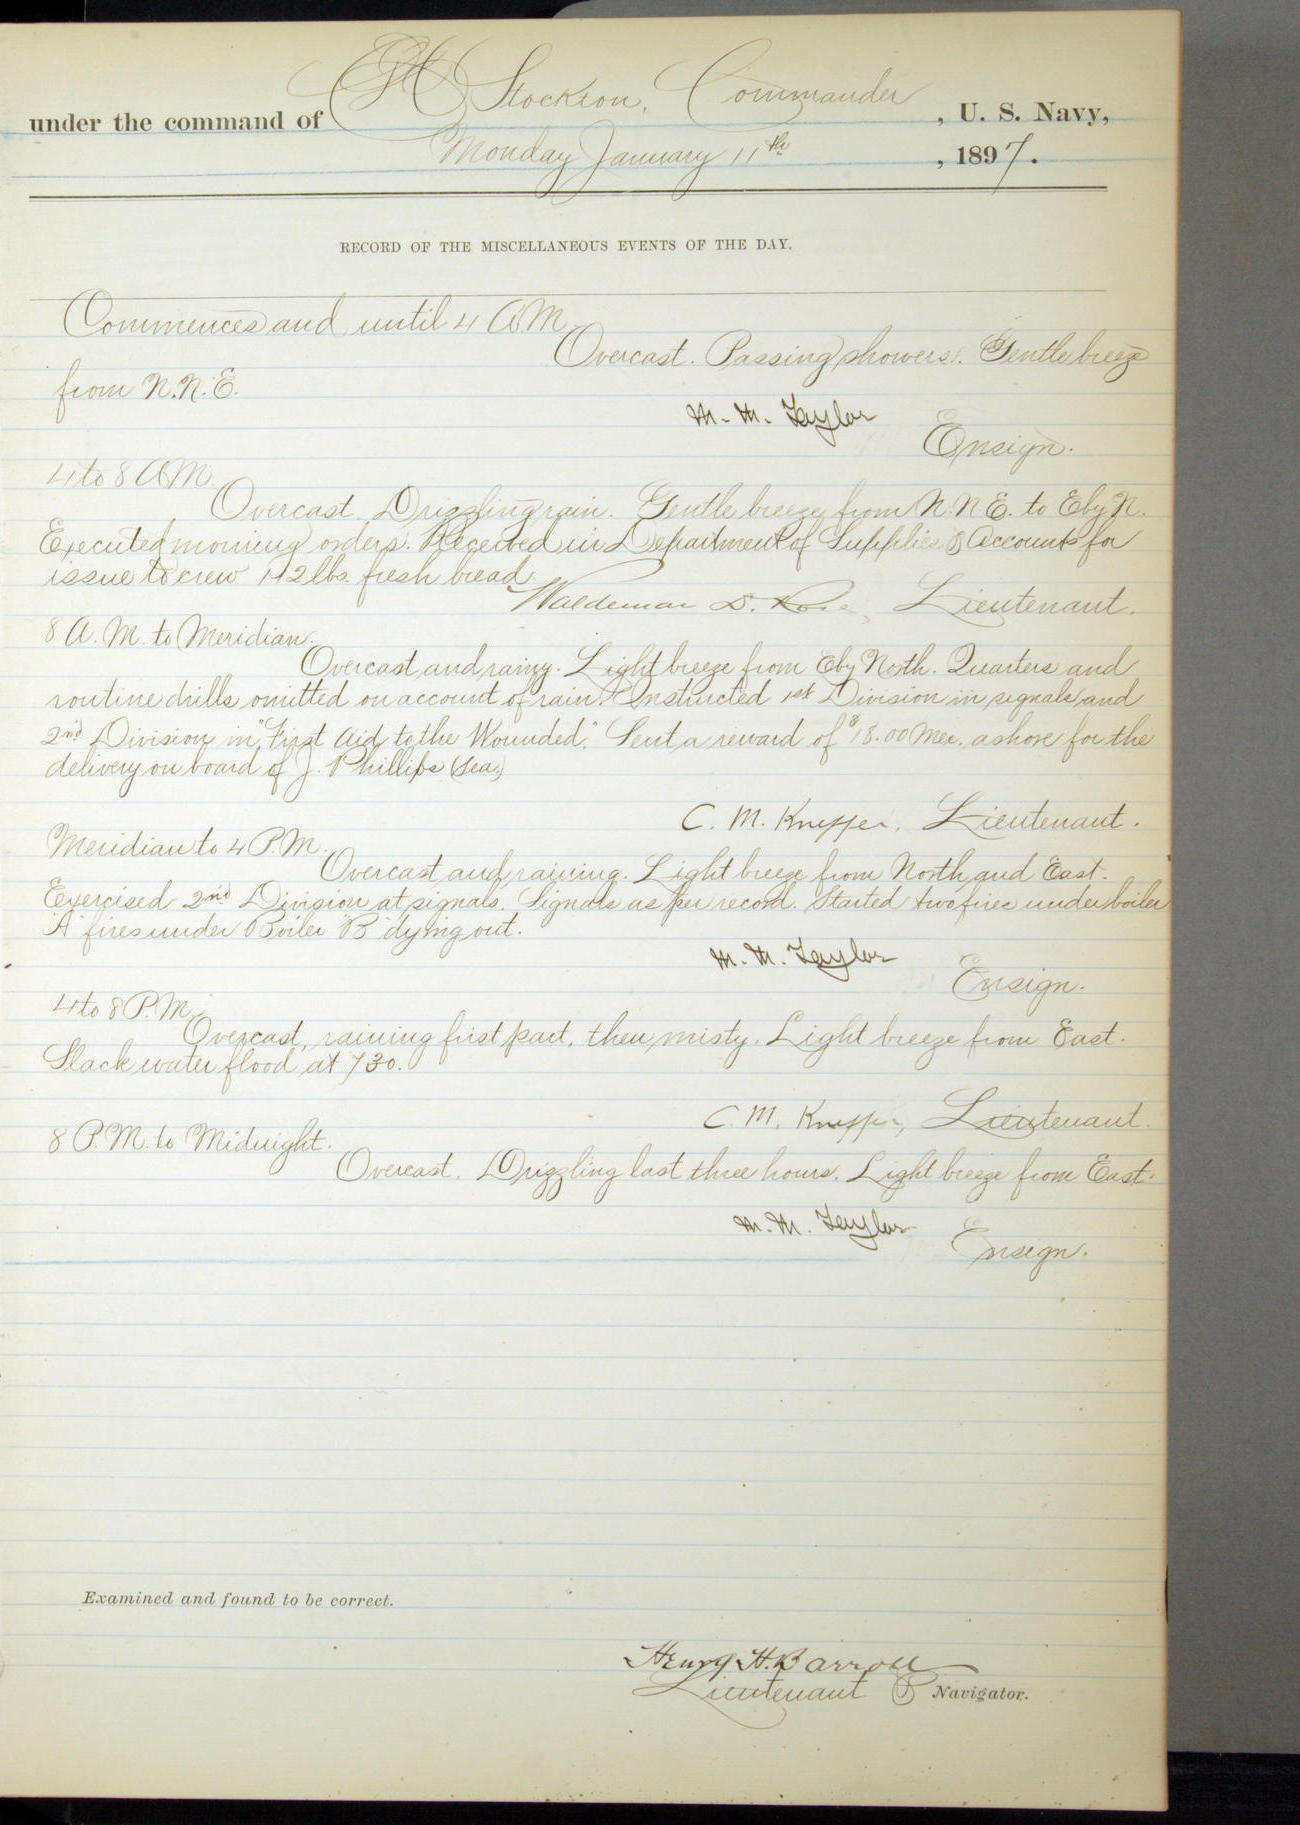 under the command of Stockton, Commander, U. S. Navy,
Monday January 11th, 1897.
RECORD OF THE MISCELLANEOUS EVENTS OF THE DAY.
Commences and until 4 A.M.
Overcast. Passing showers. Gentle breeze
from N.N.E.
M. M. Taylor
Ensign.
4 to 8 A.M.
Overcast. Drizzling rain. Gentle breeze from N.N.E. to E by N.
Executed morning orders. Received in Department of Supplies & Accounts for
issue to crew 112 lbs. fresh bread
Waldemar D. Rose, Lieutenant.
8 A.M. to Meridian.
Overcast and rainy. Light breeze from E by North. Quarters and
routine drills omitted on account of rain. Instructed 1st Division in signals and
2nd Division in "First Aid to the Wounded." Sent a reward of $18.00 Mex. ashore for the
delivery on board of J. Phillips (Sea.)
C. M. Knepper, Lieutenant.
Meridian to 4 P.M.
Overcast and raining. Light breeze from North and East.
Exercised 2nd Division at signals. Signals as per record. Started two fires under boiler
"A" fires under Boiler "B" dying out.
M. M. Taylor
Ensign.
4 to 8 P.M.
Overcast, raining first part, then misty. Light breeze from East.
Slack water flood at 7 30.
C. M. Knepper, Lieutenant.
8 P.M. to Midnight.
Overcast. Drizzling last three hours. Light breeze from East.
M. M. Taylor
Ensign.
Examined and found to be correct.
Henry H. Barroll
Lieutenant & Navigator.